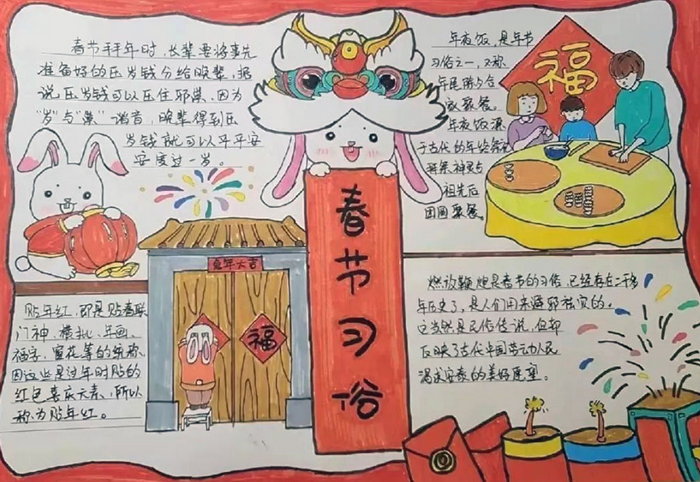 春节拜年时，长辈要将事先
准备好的压岁钱分给晚辈，据
说压岁钱可以压住邪祟，因为
"岁"与"祟"谐音，晚辈得到压
岁钱就可以平平安
安度过一岁。
年夜饭，是年节
习俗之一，又称
年尾踏与合
家聚餐。
年夜饭源
于古代的年终祭祀
拜祭神灵与
祖先后
团圆聚餐。
福
春节习俗
兔年大吉
福
贴年红，即是贴春联
门神，横批、年画、
福字，窗花等的统称，
因这些是过年时贴的
红色喜庆元素，所以
称为贴年红。
燃放鞭炮是春节的习俗，已经存在二千多
年历史了，是人们用来避邪祛灾的。
这当然是民俗传说，但却
反映了古代中国劳动人民
渴求安泰的美好愿望。